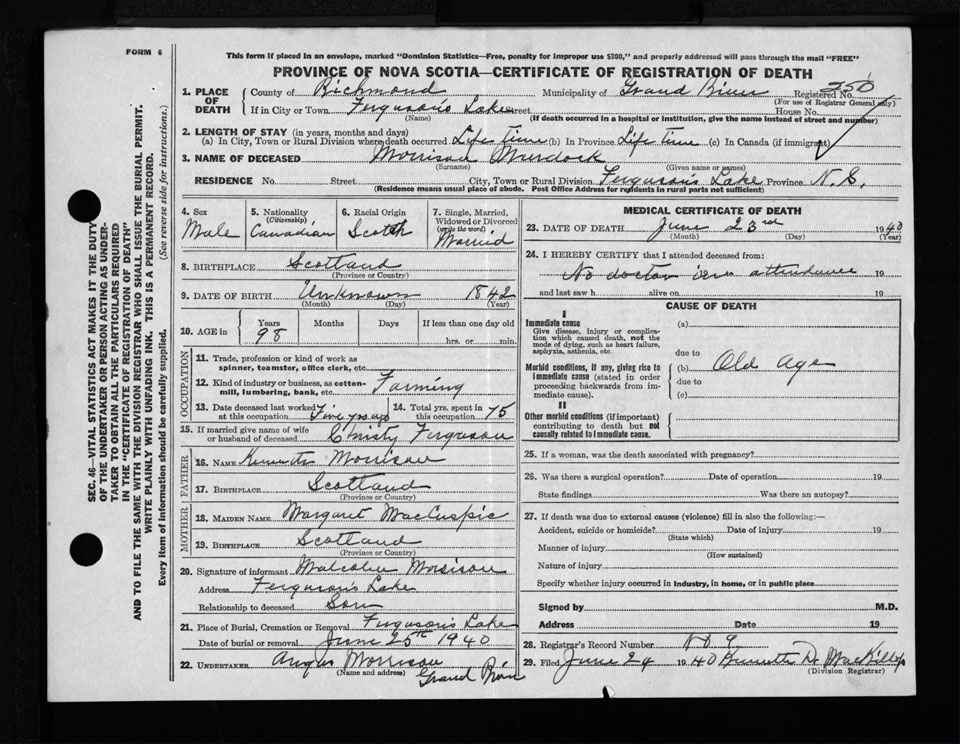 FORM 6
This form if placed in an envelope, marked "Dominion Statistics—Free, penalty for improper use $300," and properly addressed will pass through the mail "FREE"
PROVINCE OF NOVA SCOTIA—CERTIFICATE OF REGISTRATION OF DEATH
1. PLACE OF DEATH County of Richmond Municipality of Grand River Registered No. 250
(For use of Registrar General only)
If in City or Town Ferguson's Lake street House No.
(Name) (If death occurred in a hospital or institution, give the name instead of street and number)
2. LENGTH OF STAY (in years, months and days)
(a) In City, Town or Rural Division where death occurred Life Time (b) In Province Life Time (c) In Canada (if immigrant)
3. NAME OF DECEASED Morrison Murdock
(Surname) (Given name or names)
RESIDENCE No. Street City, Town or Rural Division Ferguson's Lake Province N.S.
(Residence means usual place of abode. Post Office Address for residents in rural parts not sufficient)
4. Sex Male
5. Nationality (Citizenship) Canadian
6. Racial Origin Scotch
7. Single, Married, Widowed or Divorced (write the word) Married
8. BIRTHPLACE Scotland
(Province or Country)
9. DATE OF BIRTH Unknown 1842
(Month) (Day) (Year)
10. AGE in Years Months Days If less than one day old
98 hrs. or min.
OCCUPATION
11. Trade, profession or kind of work as spinner, teamster, office clerk, etc.
12. Kind of industry or business, as cotton-mill, lumbering, bank, etc. Farming
13. Date deceased last worked at this occupation Five yrs ago 14. Total yrs. spent in this occupation 75
15. If married give name of wife or husband of deceased Christy Ferguson
FATHER
16. NAME Kenneth Morrison
17. BIRTHPLACE Scotland
(Province or Country)
MOTHER
18. MAIDEN NAME Margaret MacCuspic
19. BIRTHPLACE Scotland
(Province or Country)
20. Signature of informant Malcolm Morrison
Address Ferguson's Lake
Relationship to deceased Son
21. Place of Burial, Cremation or Removal Ferguson's Lake
Date of burial or removal June 25th 1940
22. UNDERTAKER Angus Morrison
(Name and address) Grand River
MEDICAL CERTIFICATE OF DEATH
23. DATE OF DEATH June 23rd 1940
(Month) (Day) (Year)
24. I HEREBY CERTIFY that I attended deceased from:
No doctor in attendance 19
and last saw h alive on 19
CAUSE OF DEATH
I
Immediate cause (a)
Give disease, injury or complication which caused death, not the mode of dying, such as heart failure, asphyxia, asthenia, etc.
due to
Morbid conditions, if any, giving rise to immediate cause (stated in order proceeding backwards from immediate cause).
(b) Old Age
due to
(c)
II
Other morbid conditions (if important) contributing to death but not causally related to immediate cause.
25. If a woman, was the death associated with pregnancy?
26. Was there a surgical operation? Date of operation 19
State findings Was there an autopsy?
27. If death was due to external causes (violence) fill in also the following:—
Accident, suicide or homicide? Date of injury 19
(State which)
Manner of injury
(How sustained)
Nature of injury
Specify whether injury occurred in industry, in home, or in public place
Signed by M.D.
Address Date 19
28. Registrar's Record Number 9
29. Filed June 24 1940 Kenneth D.
(Division Registrar)
SEC. 46—VITAL STATISTICS ACT MAKES IT THE DUTY
OF THE UNDERTAKER OR PERSON ACTING AS UNDER-
TAKER TO OBTAIN ALL THE PARTICULARS REQUIRED
IN THE "CERTIFICATE OF REGISTRATION OF DEATH"
AND TO FILE THE SAME WITH THE DIVISION REGISTRAR WHO SHALL ISSUE THE BURIAL PERMIT.
WRITE PLAINLY WITH UNFADING INK. THIS IS A PERMANENT RECORD.
Every item of information should be carefully supplied. (See reverse side for instructions.)